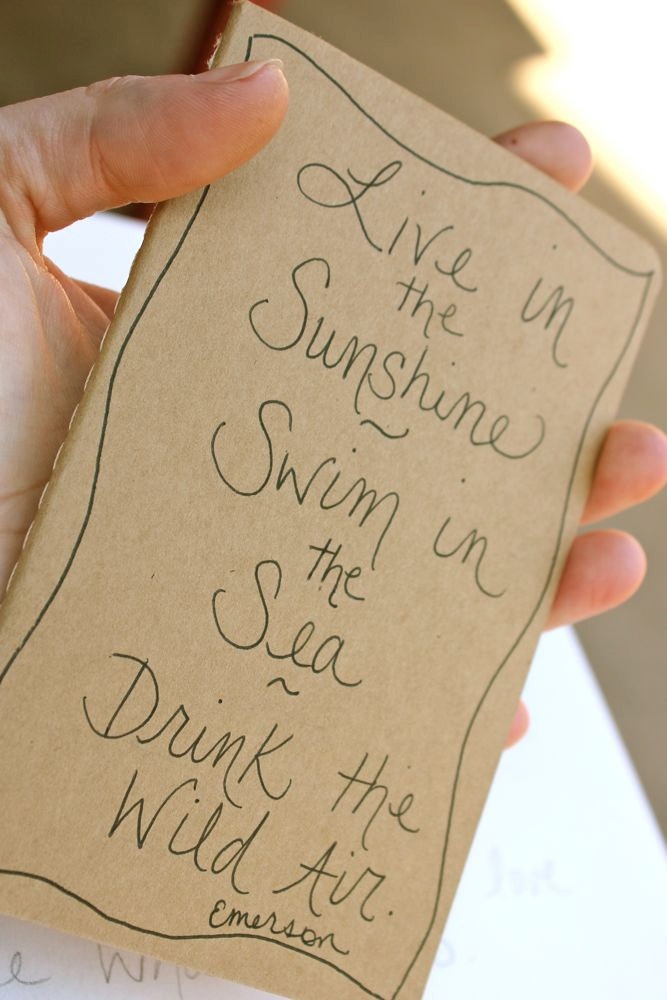 Live in
the
Sunshine
~
Swim in
the
Sea
~
Drink the
Wild Air.
Emerson
love